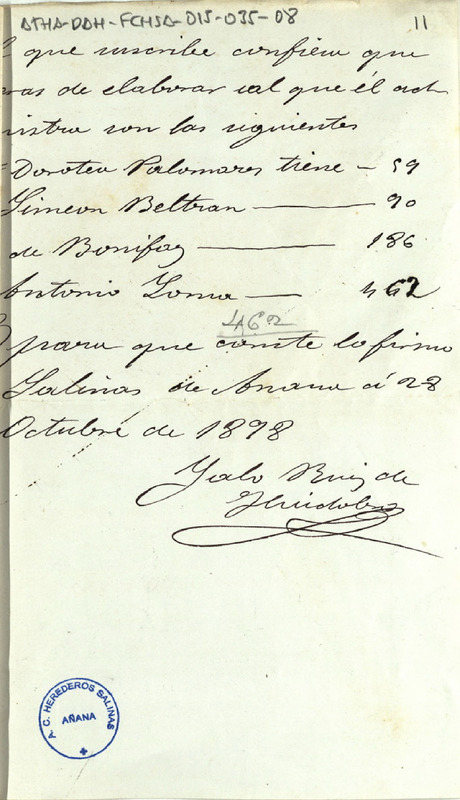 ATHA-DAH-FCHSA-015-035-08
11
que suscribe confiesa que
eras de elaborar sal que él adm
nistra son las siguientes
Dorotea Palomares tiene — 59
Simeon Beltran — 90
de Bonifaz — 186
Antonio Loma — 462
462
para que conste lo firmo
Salinas de Anana á 28
Octubre de 1898
Ruiz de
Huidobro
A.C. HEREDEROS SALINAS
AÑANA